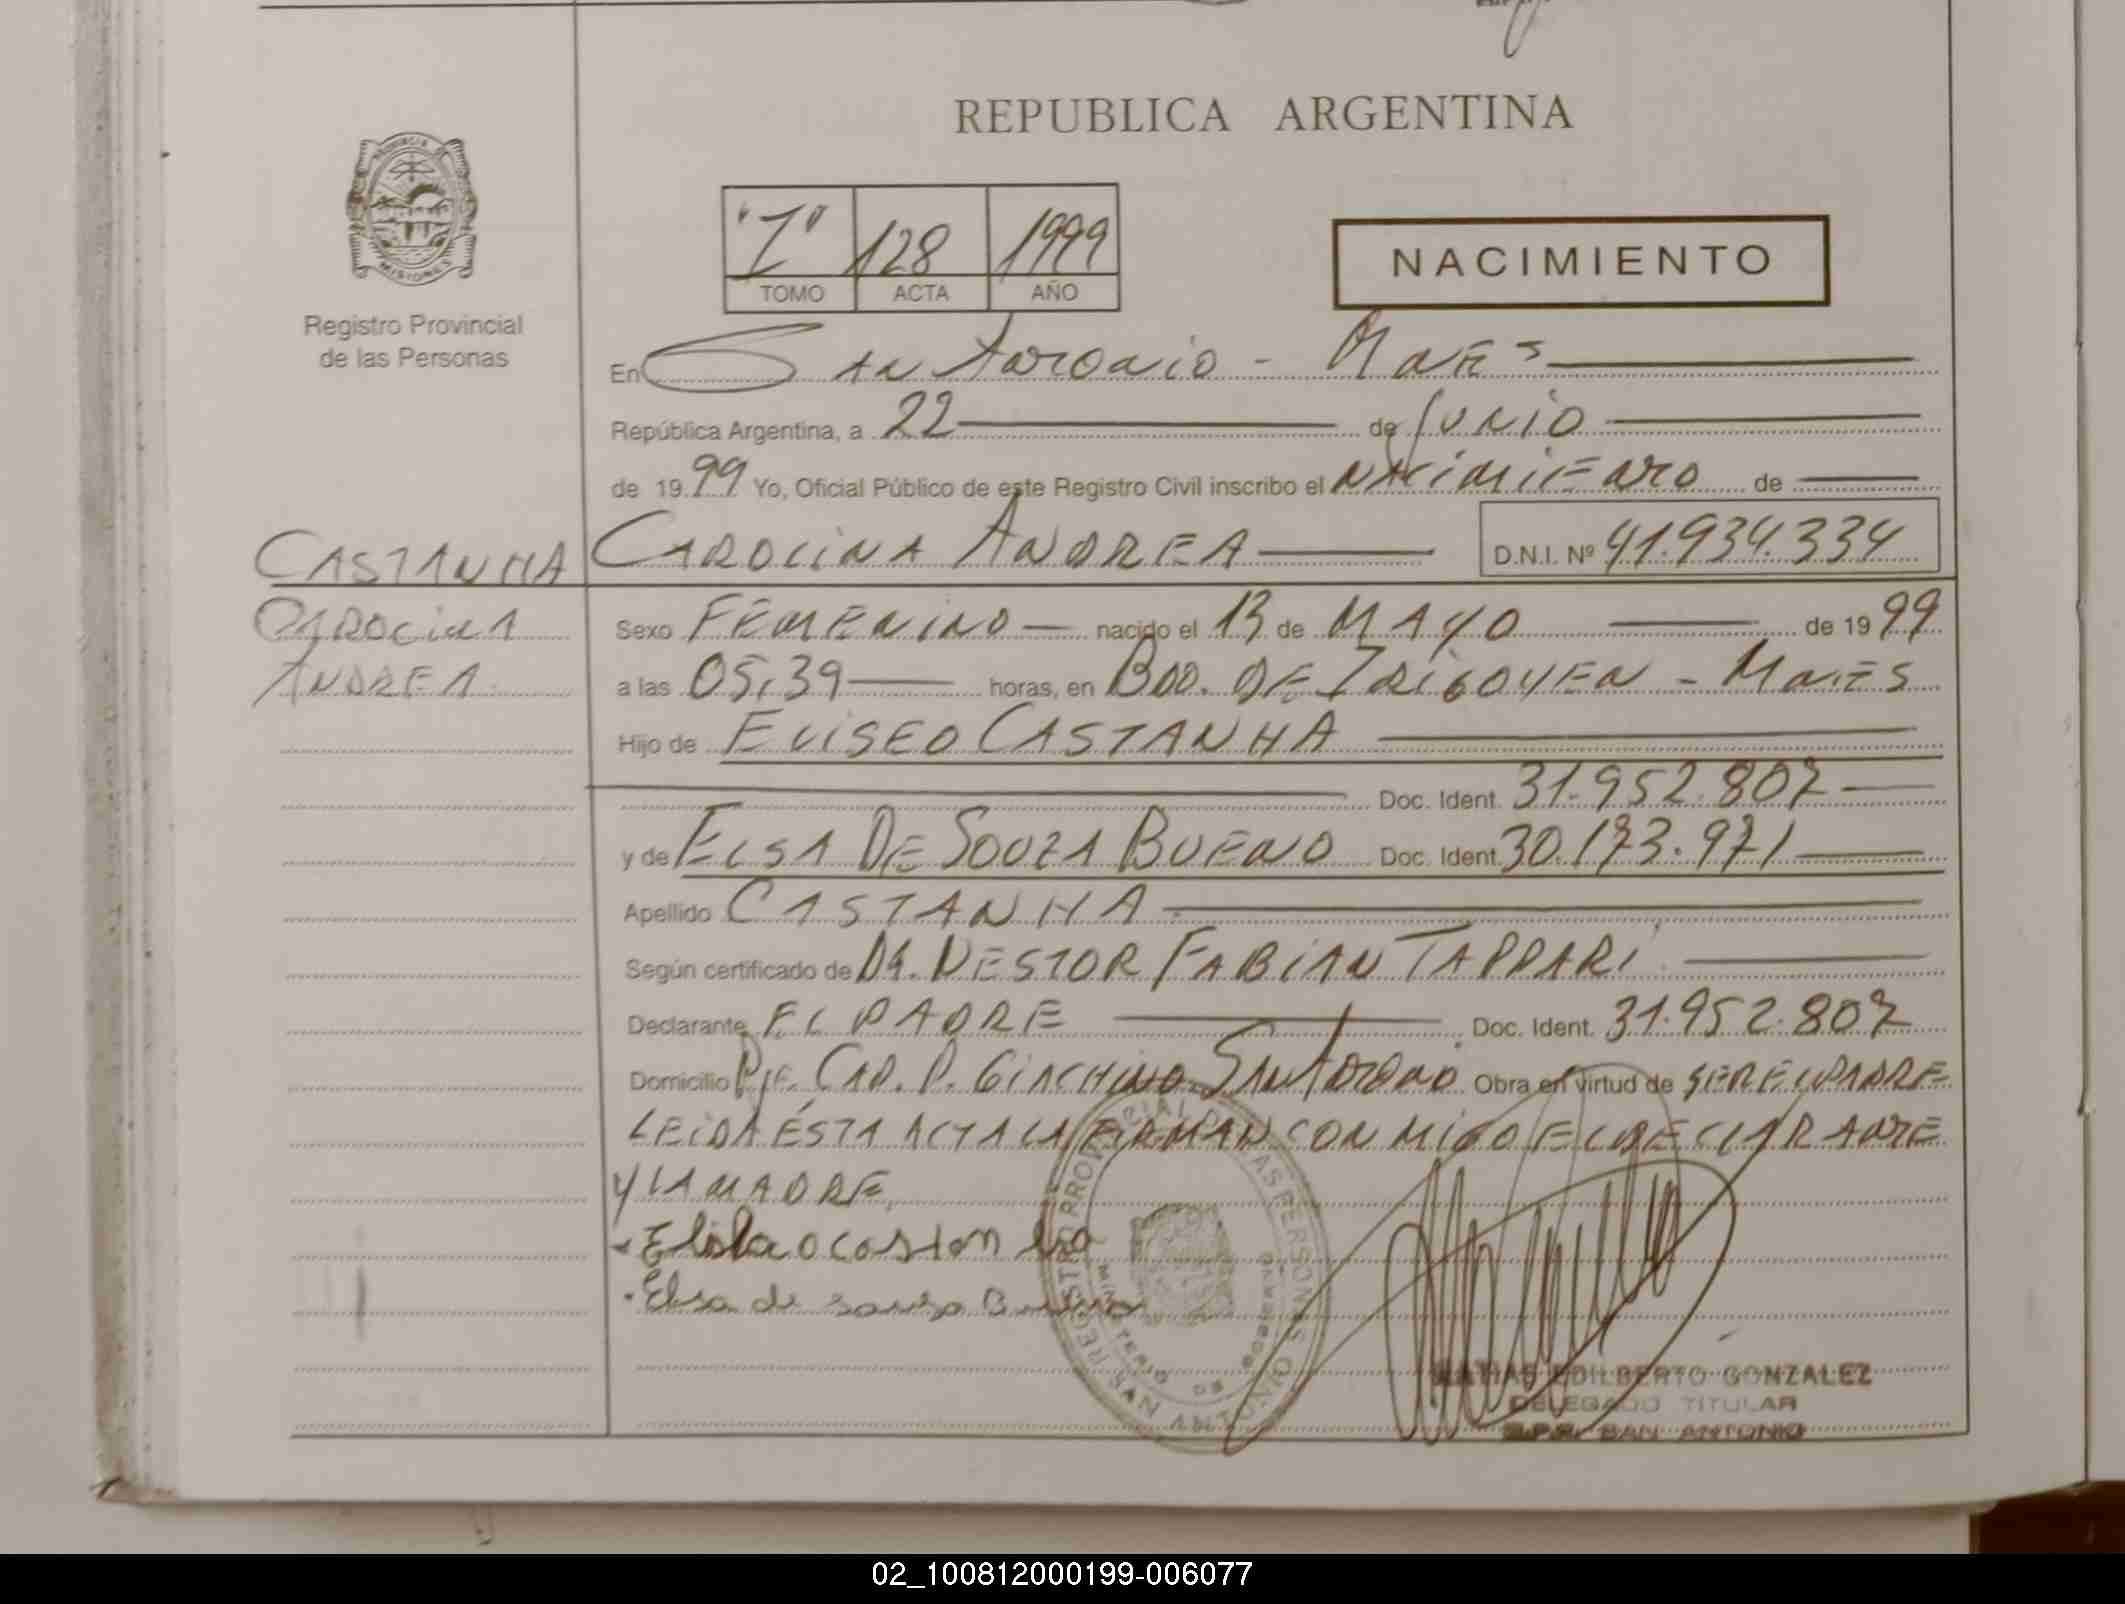 REPUBLICA ARGENTINA
PROVINCIA DE
MISIONES
Registro Provincial
de las Personas
"I" 128 1999
TOMO ACTA AÑO
NACIMIENTO
En San Antonio - Mnes
República Argentina, a 22 de Junio
de 1999 Yo, Oficial Público de este Registro Civil inscribo el NACIMIENTO de
CASTANHA CAROLINA ANDREA D.N.I. Nº 41.934.334
CAROLINA
ANDREA
Sexo FEMENINO nacido el 13 de MAYO de 1999
a las 05,39 horas, en BDO. DE IRIGOYEN - Mnes
Hijo de ELISEO CASTANHA
Doc. Ident. 31.952.807
y de ELSA DE SOUZA BUENO Doc. Ident. 30.173.971
Apellido CASTANHA
Según certificado de DR. NESTOR FABIAN TAPPARI
Declarante EL PADRE Doc. Ident. 31.952.807
Domicilio Pje. CAP. P. GIACHINO SAN ANTONIO Obra en virtud de SER EL PADRE
LEIDA ÉSTA ACTA LA FIRMAN CON MIGO EL DECLARANTE
Y LA MADRE
Elsa de souza Bueno
REGISTRO PROVINCIAL DE LAS PERSONAS
MINISTERIO DE GOBIERNO
SAN ANTONIO
MATIAS EDILBERTO GONZALEZ
DELEGADO TITULAR
R.P.P. SAN ANTONIO
02_100812000199-006077